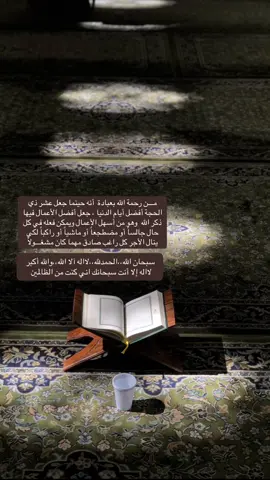 مــن رحمة الله بعبادة أنه حينما جعل عشر ذي
الحجة أفضل أيام الدنيا ، جعل أفضل الأعمال فيها
ذكر الله وهو من أسهل الأعمال ويمكن فعله في كل
حال جالساً أو مضطجعاً أو ماشياً أو راكباً لكي
ينال الأجر كل راغب صادق مهما كان مشغــولاً
سبحان الله،،الحمدلله،،لااله الا الله،،والله أكبر
لااله إلا أنت سبحانك اني كنت من الظالمين